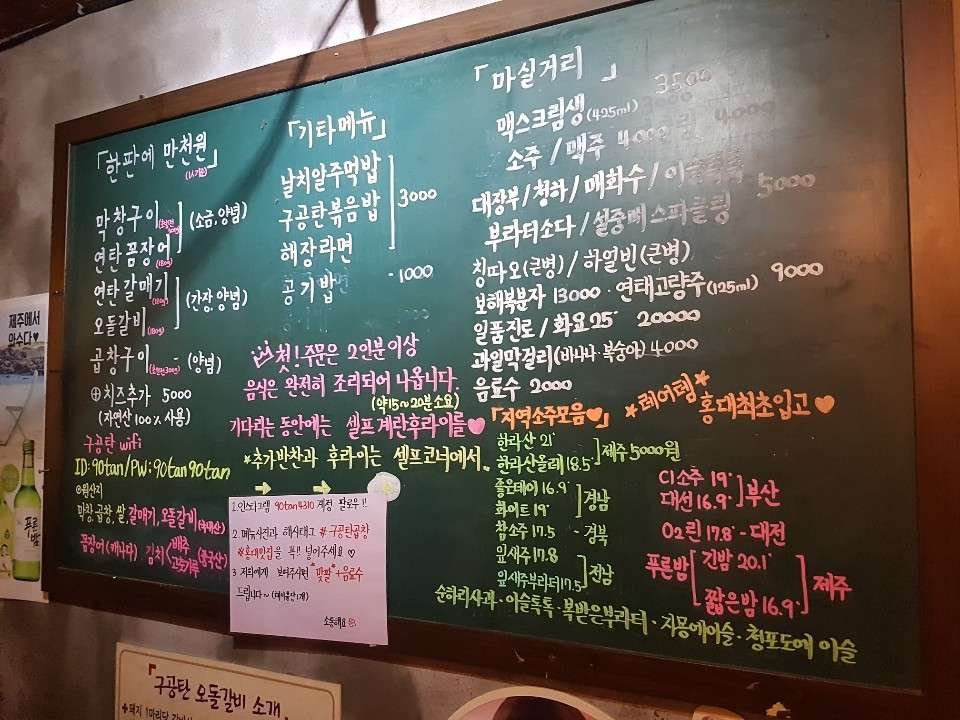 「한판에 만천원」
(1人기준)
막창구이
연탄 꼼장어 (180g)
(소금, 양념)
연탄 갈매기 (180g)
오돌갈비 (180g)
(간장, 양념)
곱창구이 - (양념)
⊕치즈추가 5000
(자연산 100% 사용)
구공탄 wifi
ID: 90tan / PW: 90tan90tan
⊙원산지
막창, 곱창, 쌀, 갈매기, 오돌갈비 (국내산)
꼼장어 (캐나다) 김치 (배추 고춧가루 (중국산)
「기타메뉴」
날치알주먹밥
구공탄볶음밥
해장라면
3000
공기밥 -1000
첫! 주문은 2인분 이상
음식은 완전히 조리되어 나옵니다.
(약15~20분 소요)
기다리는 동안에는 셀프 계란후라이를♥
*추가반찬과 후라이는 셀프코너에서..
「마실거리」
맥스크림생 (425ml) 3500
소주 / 맥주 4000
대장부 / 청하 / 매화수 /
부라더소다 / 설중매 스파클링 5000
칭따오 (큰병) / 하얼빈 (큰병)
보해복분자 13000 · 연태고량주 (125ml) 9000
일품진로 / 화요25˚ 20000
과일막걸리 (바나나 · 복숭아) 4000
음료수 2000
「지역소주모음♥」
*레어템* 홍대최초입고♥
한라산 21˚
한라산올래 18.5˚
제주 5000원
좋은데이 16.9˚
화이트 19˚
경남
참소주 17.5 - 경북
잎새주 17.8
잎새주부라더 17.5
전남
C1소주 19˚
대선 16.9˚
부산
O2린 17.8˚ - 대전
푸른밤
긴밤 20.1˚
짧은밤 16.9˚
제주
순하리사과 · 이슬톡톡 · 복받은부라더 · 자몽에이슬 · 청포도에 이슬
1. 인스타그램 90tan4310 계정 팔로우!!
2. 메뉴사진과 해시태그 #구공탄곱창
#홍대맛집을 꼭!! 넣어주세요♡
3. 저희에게 보여주시면 "맛팔"+음료수
드립니다~ (테이블당 1개)
소통해요
「구공탄 오돌갈비 소개」
제주에서
왓수다♥
푸른밤